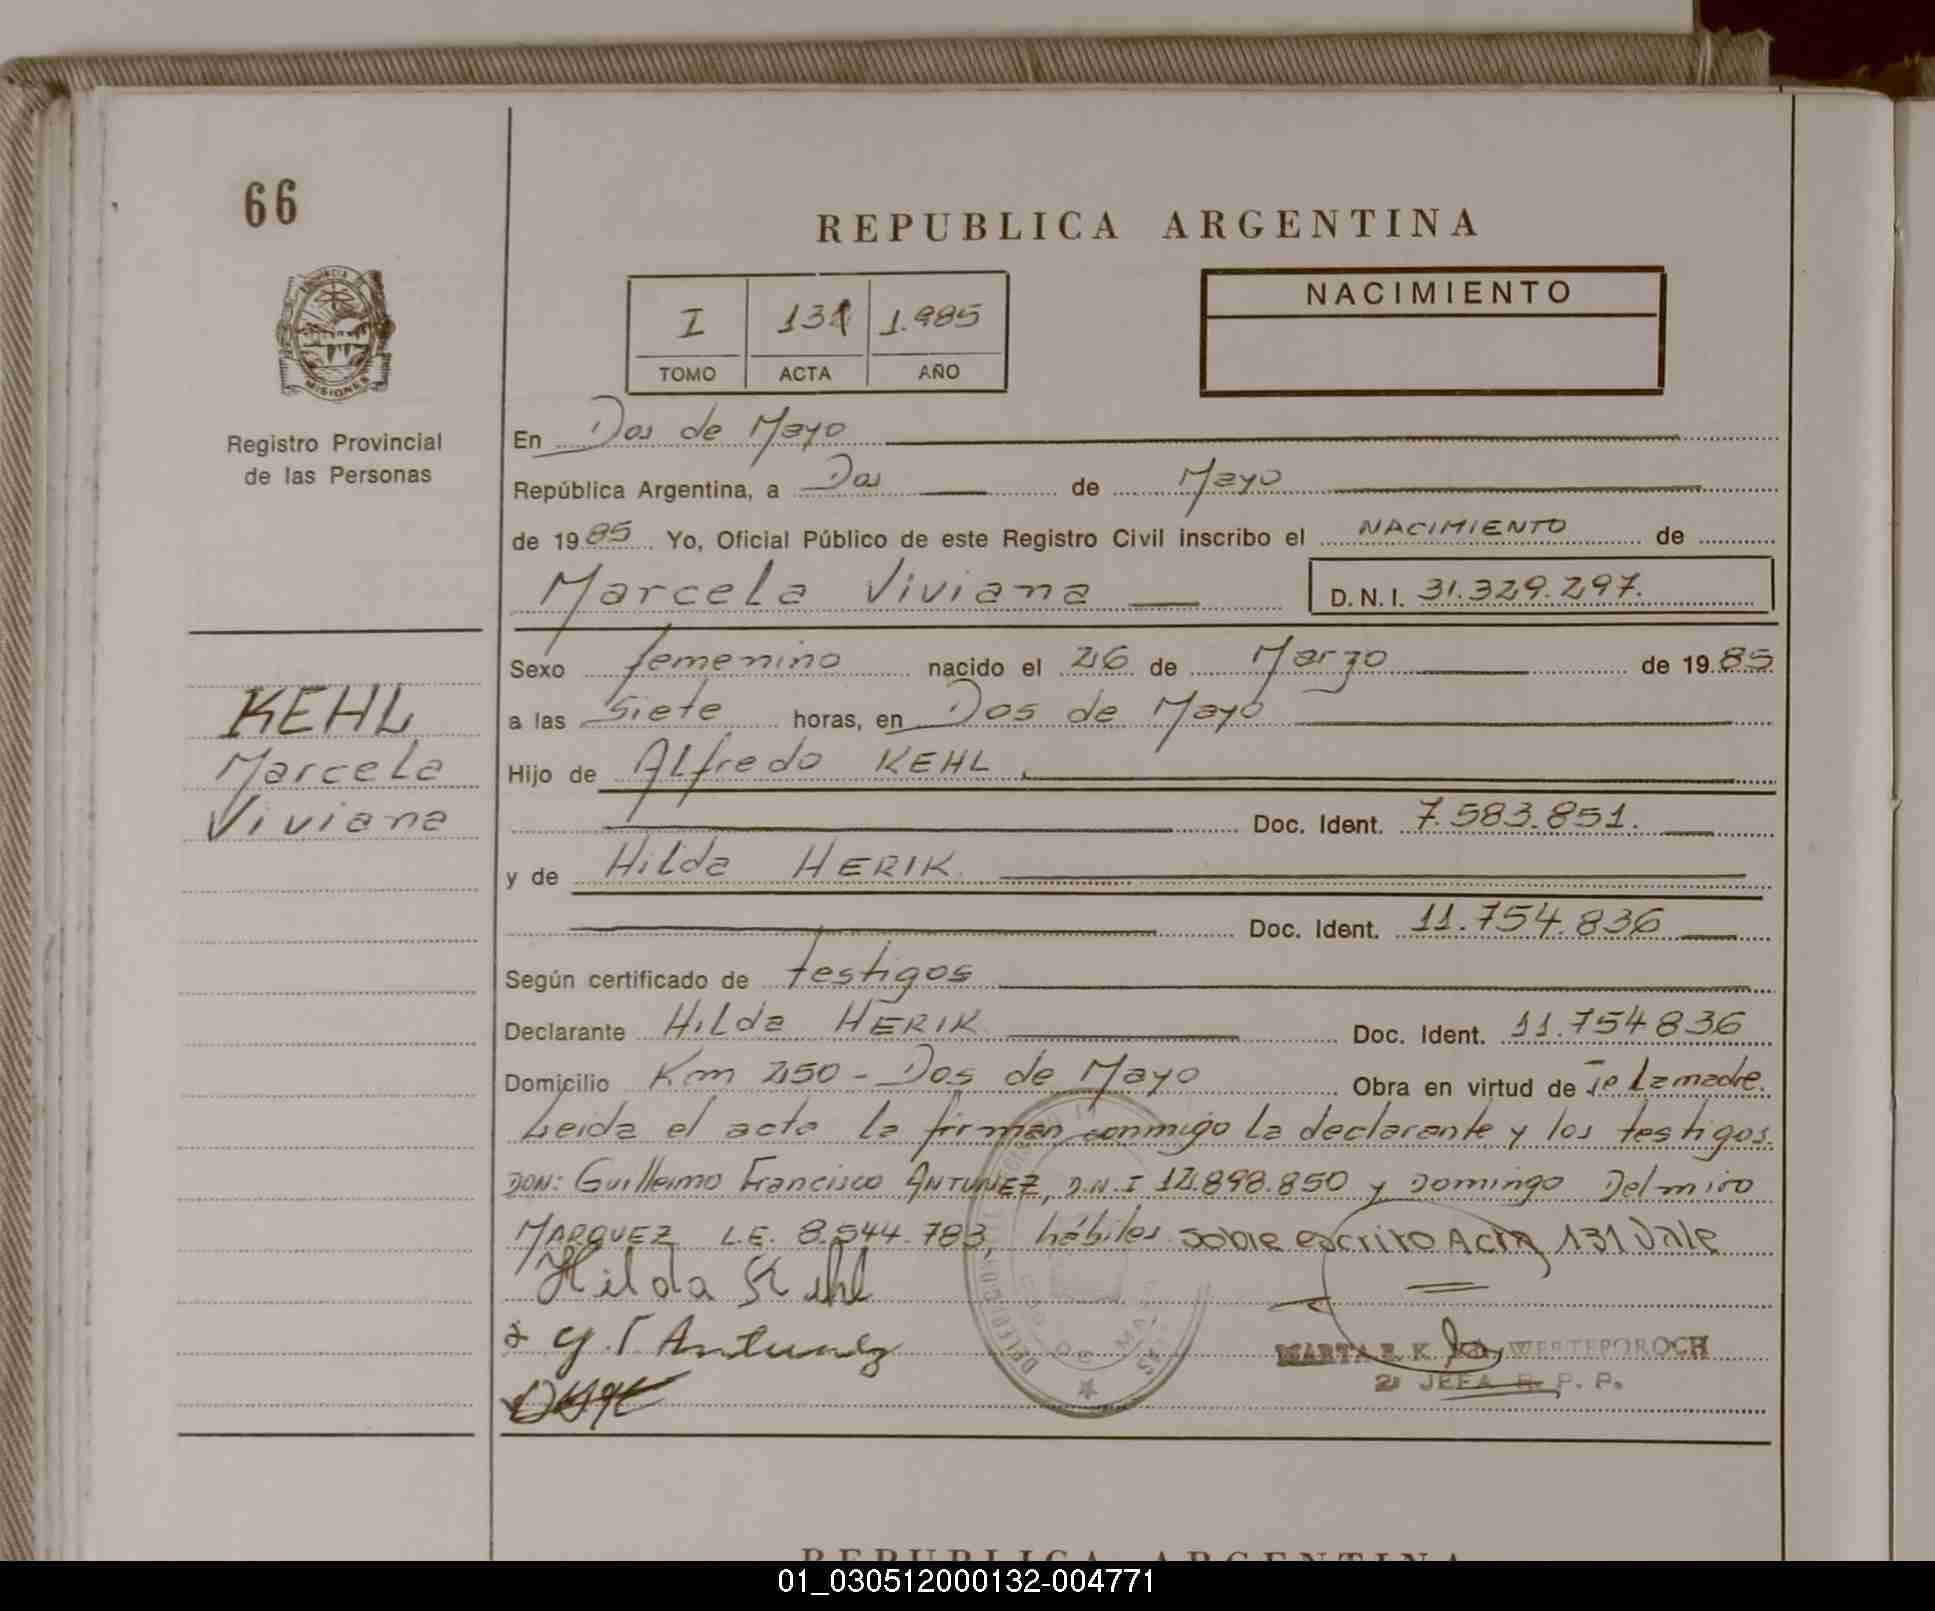 66
REPUBLICA ARGENTINA
PROVINCIA DE
MISIONES
Registro Provincial
de las Personas
I 131 1.985
TOMO ACTA AÑO
NACIMIENTO
En Dos de Mayo
República Argentina, a Dos de Mayo
de 1985 Yo, Oficial Público de este Registro Civil inscribo el NACIMIENTO de
Marcela Viviana D.N.I. 31.329.297.
Sexo femenino nacido el 26 de Marzo de 1985
a las Siete horas, en Dos de Mayo
KEHL
Marcela
Viviana
Hijo de Alfredo KEHL
Doc. Ident. 7.583.851.
y de Hilda HERIK
Doc. Ident. 11.754.836
Según certificado de testigos
Declarante Hilda HERIK Doc. Ident. 11.754836
Domicilio Km 250 - Dos de Mayo Obra en virtud de la madre.
Leida el acta la firman conmigo la declarante y los testigos.
DON: Guillermo Francisco ANTUNEZ, D.N.I 12.898.850 y Domingo Delmiro
MARQUEZ L.E. 8.544.783, hábiles sobre escrito Acta 131 Vale
Hilda Kehl
G. F Antunez
MARTA E. K. WERTEPOROCH
JEFA R. P. P.
REPUBLICA ARGENTINA
01_030512000132-004771